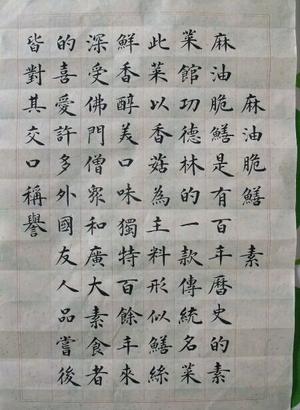 麻油脆鱔 素
麻油脆鱔是有百年曆史的素
菜館功德林的一款傳統名菜
此菜以香菇為主料形似鱔絲
鮮香醇美口味獨特百餘年來
深受佛門僧眾和廣大素食者
的喜愛許多外國友人品嘗後
皆對其交口稱譽